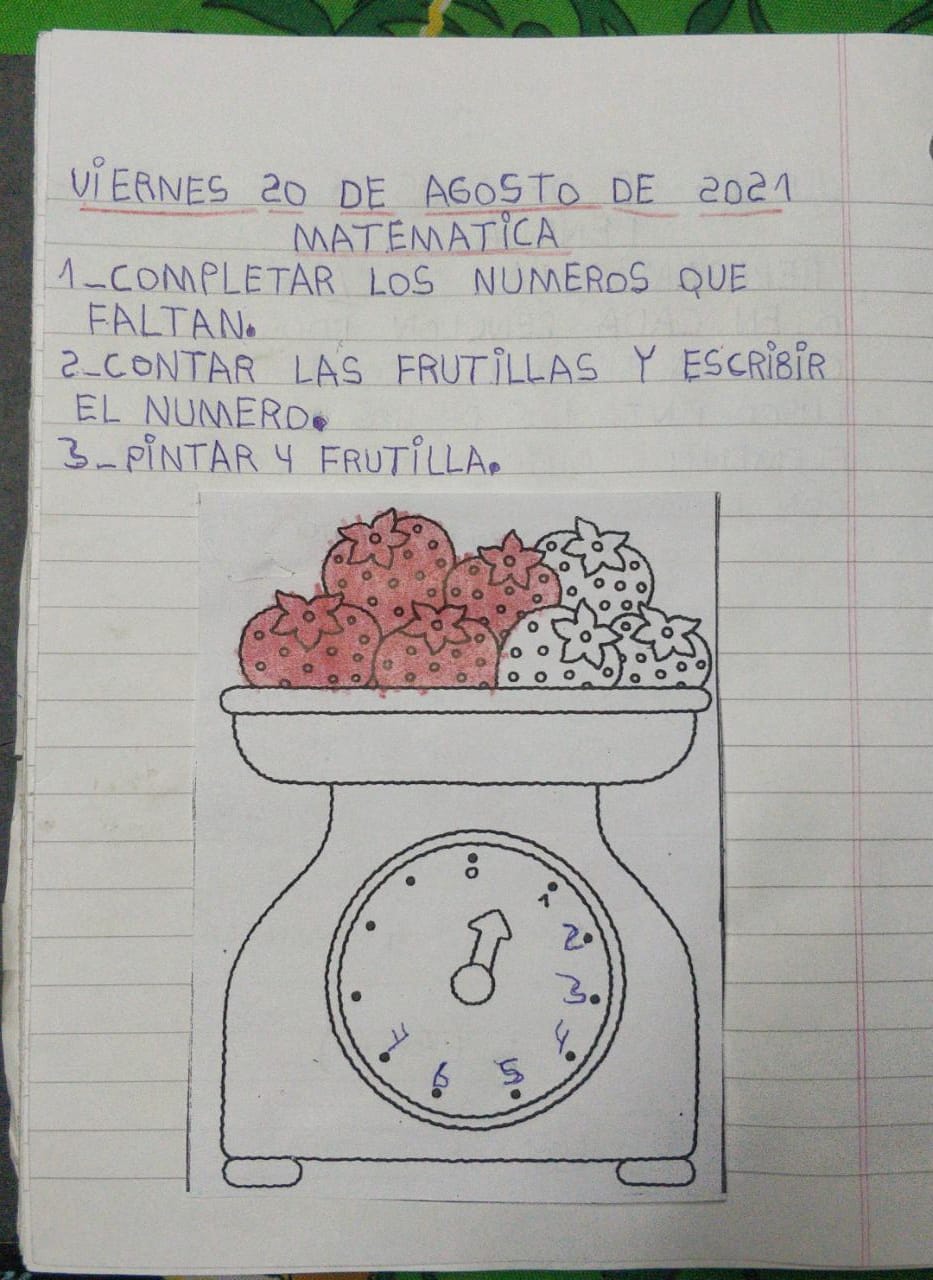 VIERNES 20 DE AGOSTO DE 2021
MATEMATICA
1_COMPLETAR LOS NUMEROS QUE
FALTAN.
2_CONTAR LAS FRUTILLAS Y ESCRIBIR
EL NUMERO.
3_PINTAR 4 FRUTILLA.
0
1
2
3
4
5
6